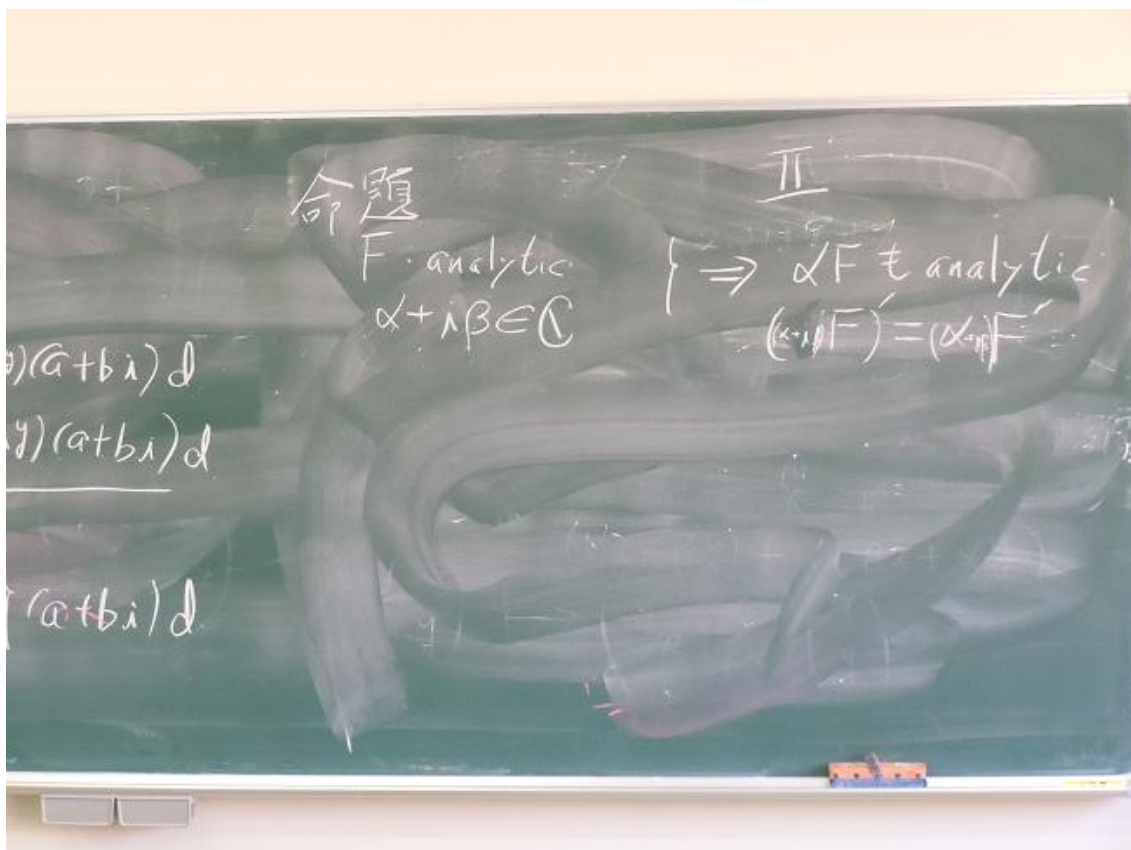 命題
II
F. analytic
α+iβ∈ℂ
} ⇒ αF も analytic
((α+iβ)F)′=(α+iβ)F′
)(a+bi)d
y)(a+bi)d
(a+bi)d